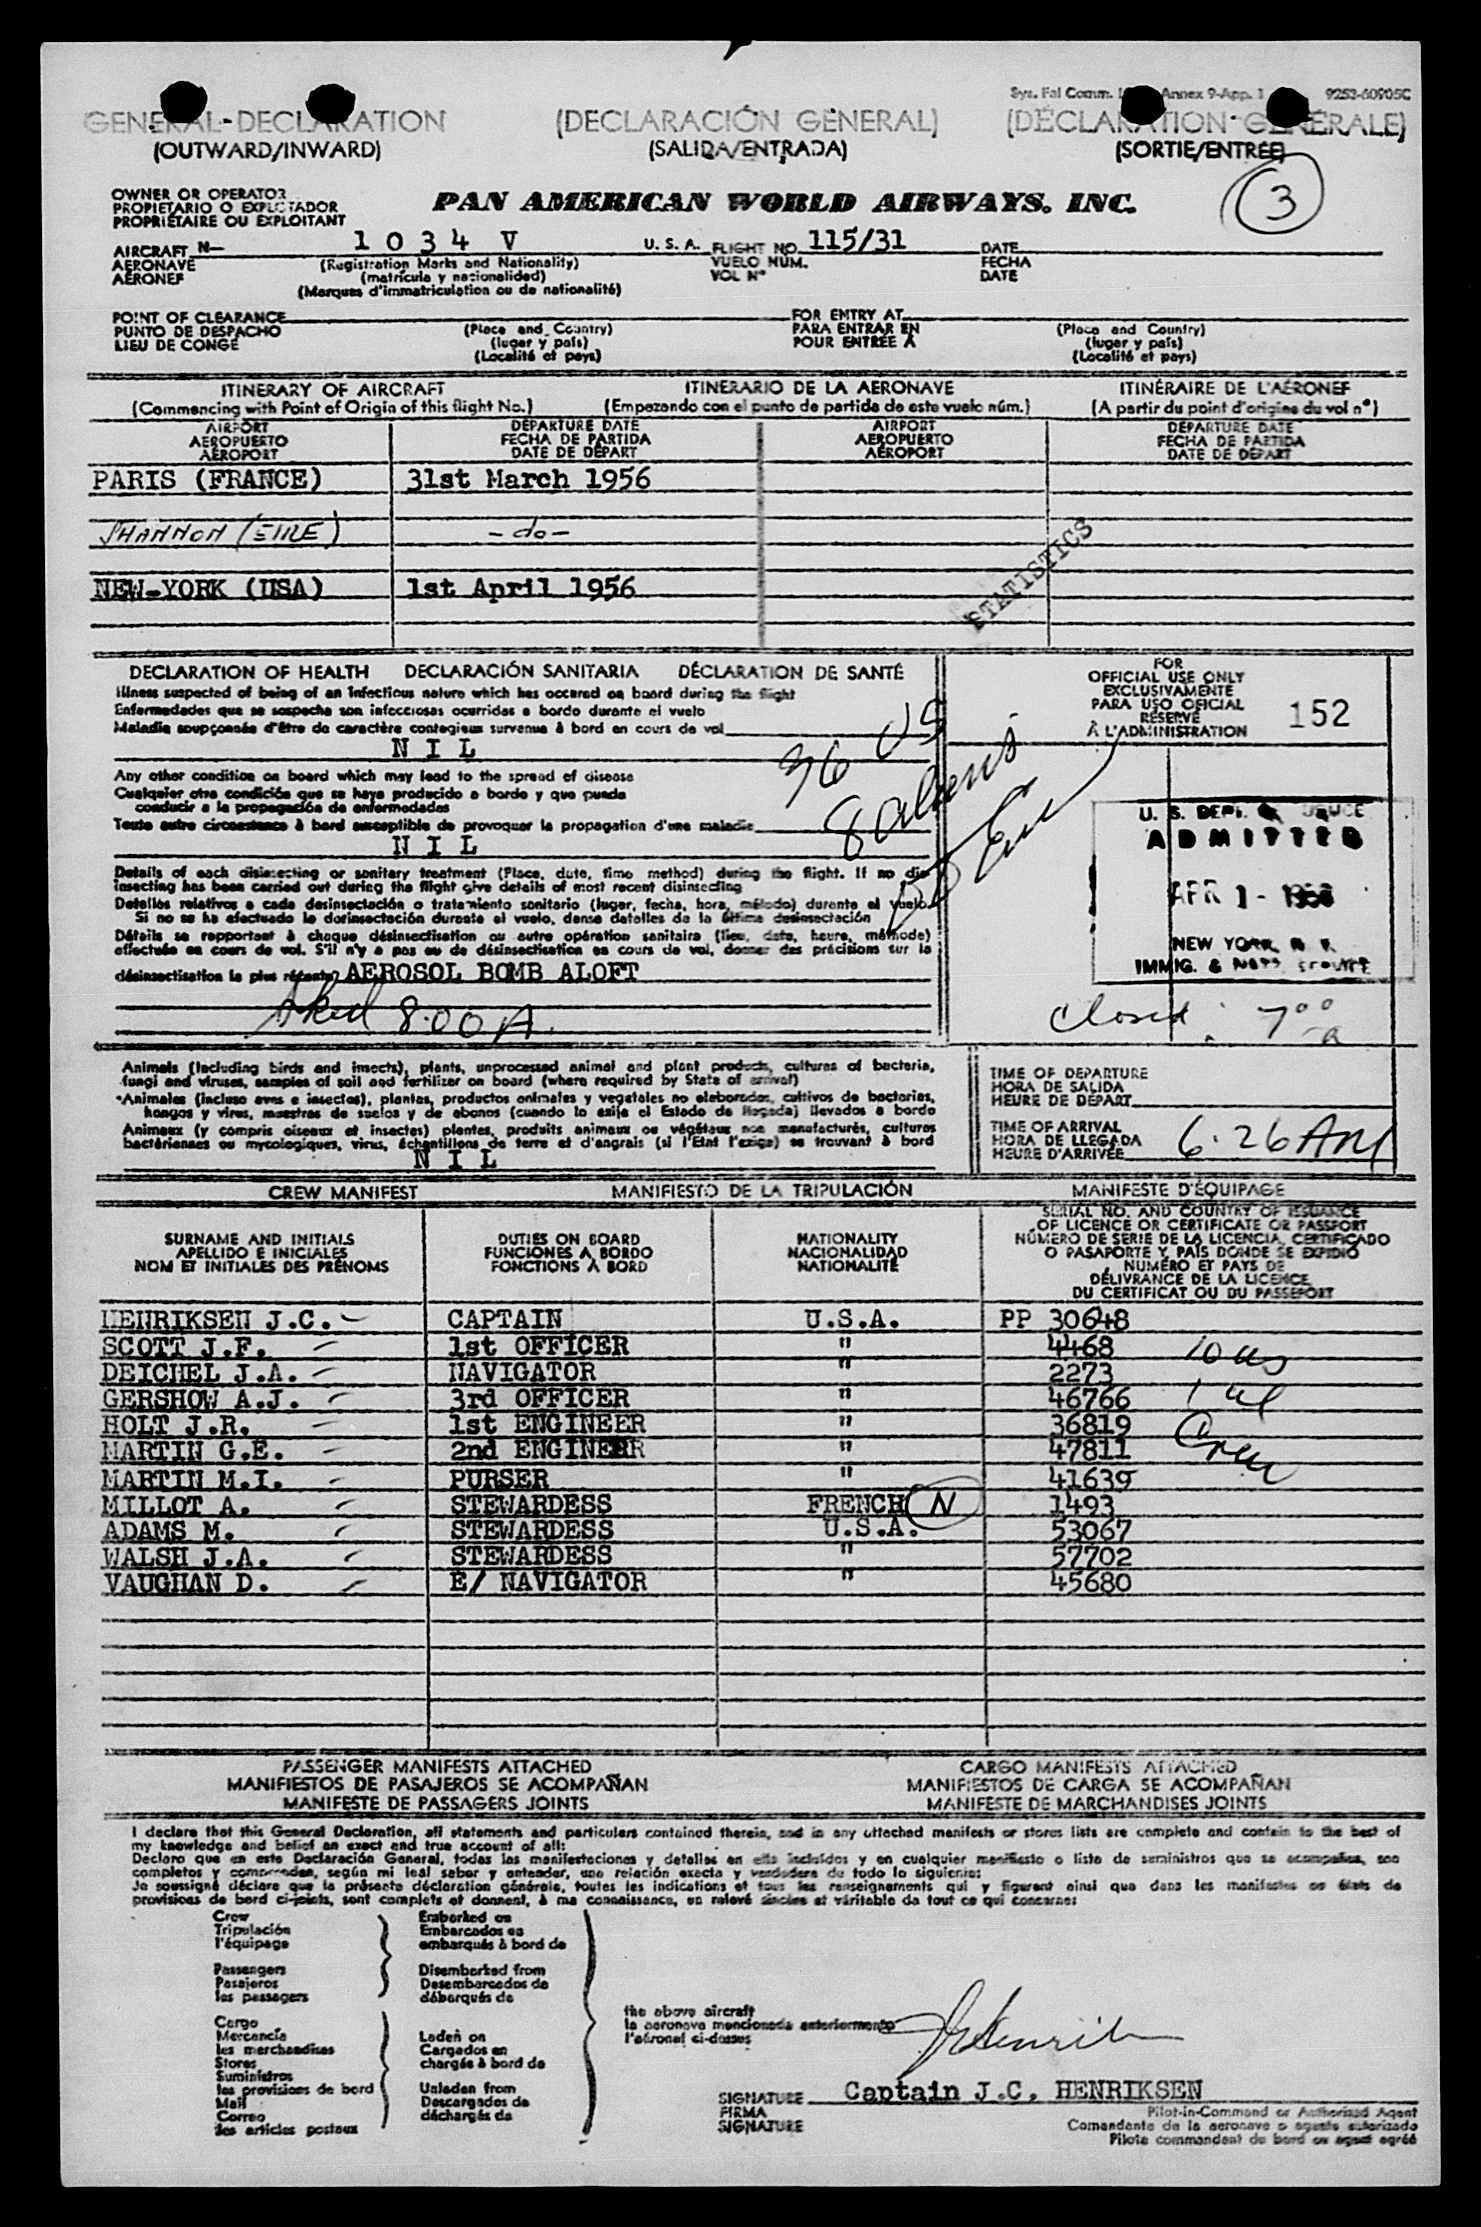 Annex 9-App. 1 9252-60905C
GENERAL-DECLARATION (DECLARACIÓN GENERAL) (DÉCLARATION GÉNÉRALE)
(OUTWARD/INWARD) (SALIDA/ENTRADA) (SORTIE/ENTRÉE)
3
OWNER OR OPERATOR
PROPIETARIO O EXPLOTADOR
PROPRIÉTAIRE OU EXPLOITANT
PAN AMERICAN WORLD AIRWAYS, INC.
AIRCRAFT N— 1 0 3 4 V U.S.A. FLIGHT NO. 115/31 DATE
AERONAVE (Registration Marks and Nationality) VUELO NÚM. FECHA
AÉRONEF (matrícula y nacionalidad) VOL N° DATE
(Marques d'immatriculation ou de nationalité)
POINT OF CLEARANCE FOR ENTRY AT
PUNTO DE DESPACHO (Place and Country) PARA ENTRAR EN (Place and Country)
LIEU DE CONGÉ (lugar y país) POUR ENTRÉE À (lugar y país)
(Localité et pays) (Localité et pays)
ITINERARY OF AIRCRAFT ITINERARIO DE LA AERONAVE ITINÉRAIRE DE L'AÉRONEF
(Commencing with Point of Origin of this flight No.) (Empezando con el punto de partida de este vuelo núm.) (A partir du point d'origine du vol n°)
AIRPORT DEPARTURE DATE AIRPORT DEPARTURE DATE
AEROPUERTO FECHA DE PARTIDA AEROPUERTO FECHA DE PARTIDA
AÉROPORT DATE DE DÉPART AÉROPORT DATE DE DÉPART
PARIS (FRANCE) 31st March 1956
SHANNON (EIRE) - do -
STATISTICS
NEW-YORK (USA) 1st April 1956
DECLARATION OF HEALTH DECLARACIÓN SANITARIA DÉCLARATION DE SANTÉ
Illness suspected of being of an infectious nature which has occured on board during the flight
Enfermedades que se sospecha son infecciosas ocurridas a bordo durante el vuelo
Maladie soupçonnée d'être de caractère contagieux survenue à bord en cours de vol
N I L
Any other condition on board which may lead to the spread of disease
Cualquier otra condición que se haya producido a bordo y que pueda
conducir a la propagación de enfermedades
Toute autre circonstance à bord susceptible de provoquer la propagation d'une maladie
N I L
36 US
8 aliens
Details of each disinsecting or sanitary treatment (Place, date, time method) during the flight. If no disinsecting has been carried out during the flight give details of most recent disinsecting
Detalles relativos a cada desinsectación o tratamiento sanitario (lugar, fecha, hora, método) durante el vuelo.
Si no se ha efectuado la desinsectación durante el vuelo, dense detalles de la última desinsectación
Détails se rapportant à chaque désinsectisation ou autre opération sanitaire (lieu, date, heure, méthode)
effectuée en cours de vol. S'il n'y a pas eu de désinsectisation en cours de vol, donner des précisions sur la
désinsectisation la plus récente AEROSOL BOMB ALOFT
8.00 A.
FOR
OFFICIAL USE ONLY
EXCLUSIVAMENTE
PARA USO OFICIAL
RÉSERVÉ
À L'ADMINISTRATION
152
U. S. DEPT. OF JUSTICE
ADMITTED
APR 1 - 1956
NEW YORK, N. Y.
IMMIG. & NATZ. SERVICE
Closed : 7 00 a
Animals (Including birds and insects), plants, unprocessed animal and plant products, cultures of bacteria,
fungi and viruses, samples of soil and fertilizer on board (where required by State of arrival)
Animales (incluso aves e insectos), plantas, productos animales y vegetales no elaborados, cultivos de bacterias,
hongos y virus, muestras de suelos y de abonos (cuando lo exija el Estado de llegada) llevados a bordo
Animaux (y compris oiseaux et insectes) plantes, produits animaux ou végétaux non manufacturés, cultures
bactériennes ou mycologiques, virus, échantillons de terre et d'angrais (si l'Etat l'exige) se trouvant à bord
N I L
TIME OF DEPARTURE
HORA DE SALIDA
HEURE DE DÉPART
TIME OF ARRIVAL
HORA DE LLEGADA
HEURE D'ARRIVÉE 6.26 AM
CREW MANIFEST MANIFIESTO DE LA TRIPULACIÓN MANIFESTE D'ÉQUIPAGE
SURNAME AND INITIALS
APELLIDO E INICIALES
NOM ET INITIALES DES PRÉNOMS
DUTIES ON BOARD
FUNCIONES A BORDO
FONCTIONS À BORD
NATIONALITY
NACIONALIDAD
NATIONALITÉ
SERIAL NO. AND COUNTRY OF ISSUANCE
OF LICENCE OR CERTIFICATE OR PASSPORT
NÚMERO DE SERIE DE LA LICENCIA, CERTIFICADO
O PASAPORTE Y PAÍS DONDE SE EXPIDIÓ
NUMÉRO ET PAYS DE
DÉLIVRANCE DE LA LICENCE
DU CERTIFICAT OU DU PASSEPORT
HENRIKSEN J.C. CAPTAIN U.S.A. PP 30648
SCOTT J.F. 1st OFFICER " 4468 10 US
DEICHEL J.A. NAVIGATOR " 2273
GERSHOW A.J. 3rd OFFICER " 46766 1 al
HOLT J.R. 1st ENGINEER " 36819
MARTIN G.E. 2nd ENGINEER " 47811 Crew
MARTIN M.I. PURSER " 41639
MILLOT A. STEWARDESS FRENCH N 1493
ADAMS M. STEWARDESS U.S.A. 53067
WALSH J.A. STEWARDESS " 57702
VAUGHAN D. E/ NAVIGATOR " 45680
PASSENGER MANIFESTS ATTACHED CARGO MANIFESTS ATTACHED
MANIFIESTOS DE PASAJEROS SE ACOMPAÑAN MANIFIESTOS DE CARGA SE ACOMPAÑAN
MANIFESTE DE PASSAGERS JOINTS MANIFESTE DE MARCHANDISES JOINTS
I declare that this General Declaration, all statements and particulars contained therein, and in any attached manifests or stores lists are complete and contain to the best of
my knowledge and belief an exact and true account of all:
Declaro que en esta Declaración General, todas las manifestaciones y detalles en ella incluidos y en cualquier manifiesto o lista de suministros que se acompañen, son
completos y comprenden, según mi leal saber y entender, una relación exacta y verdadera de todo lo siguiente:
Je soussigné déclare que la présente déclaration générale, toutes les indications et tous les renseignements qui y figurent ainsi que dans les manifestes ou états de
provisions de bord ci-joints, sont complets et donnent, à ma connaissance, un relevé sincère et véritable de tout ce qui concerne:
Crew Embarked on
Tripulación Embarcados en
l'équipage embarqués à bord de
Passengers Disembarked from
Pasajeros Desembarcados de
les passagers débarqués de
the above aircraft
la aeronave mencionada anteriormente
l'aéronef ci-dessus
Cargo
Mercancía Laden on
les marchandises Cargados en
Stores chargés à bord de
Suministros
les provisions de bord Unladen from
Mail Descargados de
Correo déchargés de
les articles postaux
SIGNATURE Captain J.C. HENRIKSEN
FIRMA Pilot-in-Command or Authorized Agent
SIGNATURE Comandante de la aeronave o agente autorizado
Pilote commandant de bord ou agent agréé